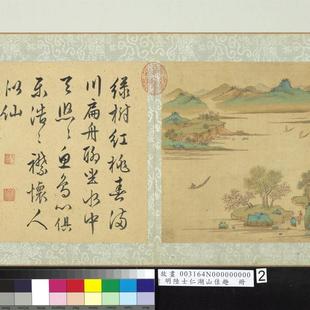 綠樹紅桃春滿
川扁舟獨坐水中
天熙々魚鳥心俱
樂浩々襟懷人
似仙
故畫 003164N000000000
明陸士仁湖山佳趣 冊
2